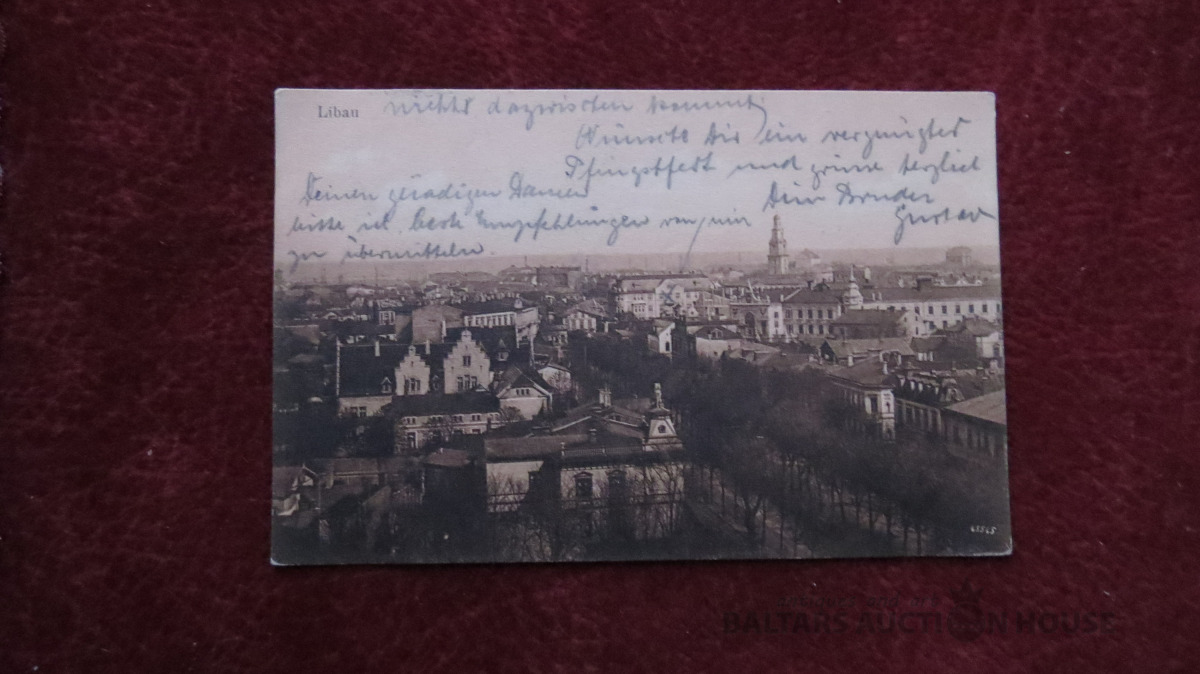 Libau
nichts dazwischen kommt,
Wünsche Dir ein vergnügtes
Pfingstfest und grüsse herzlich
Dein Bruder
Gustav
Deinen gnädigen Damen
bitte ich beste Empfehlungen von mir
zu übermitteln.
BALTARS AUCTION HOUSE